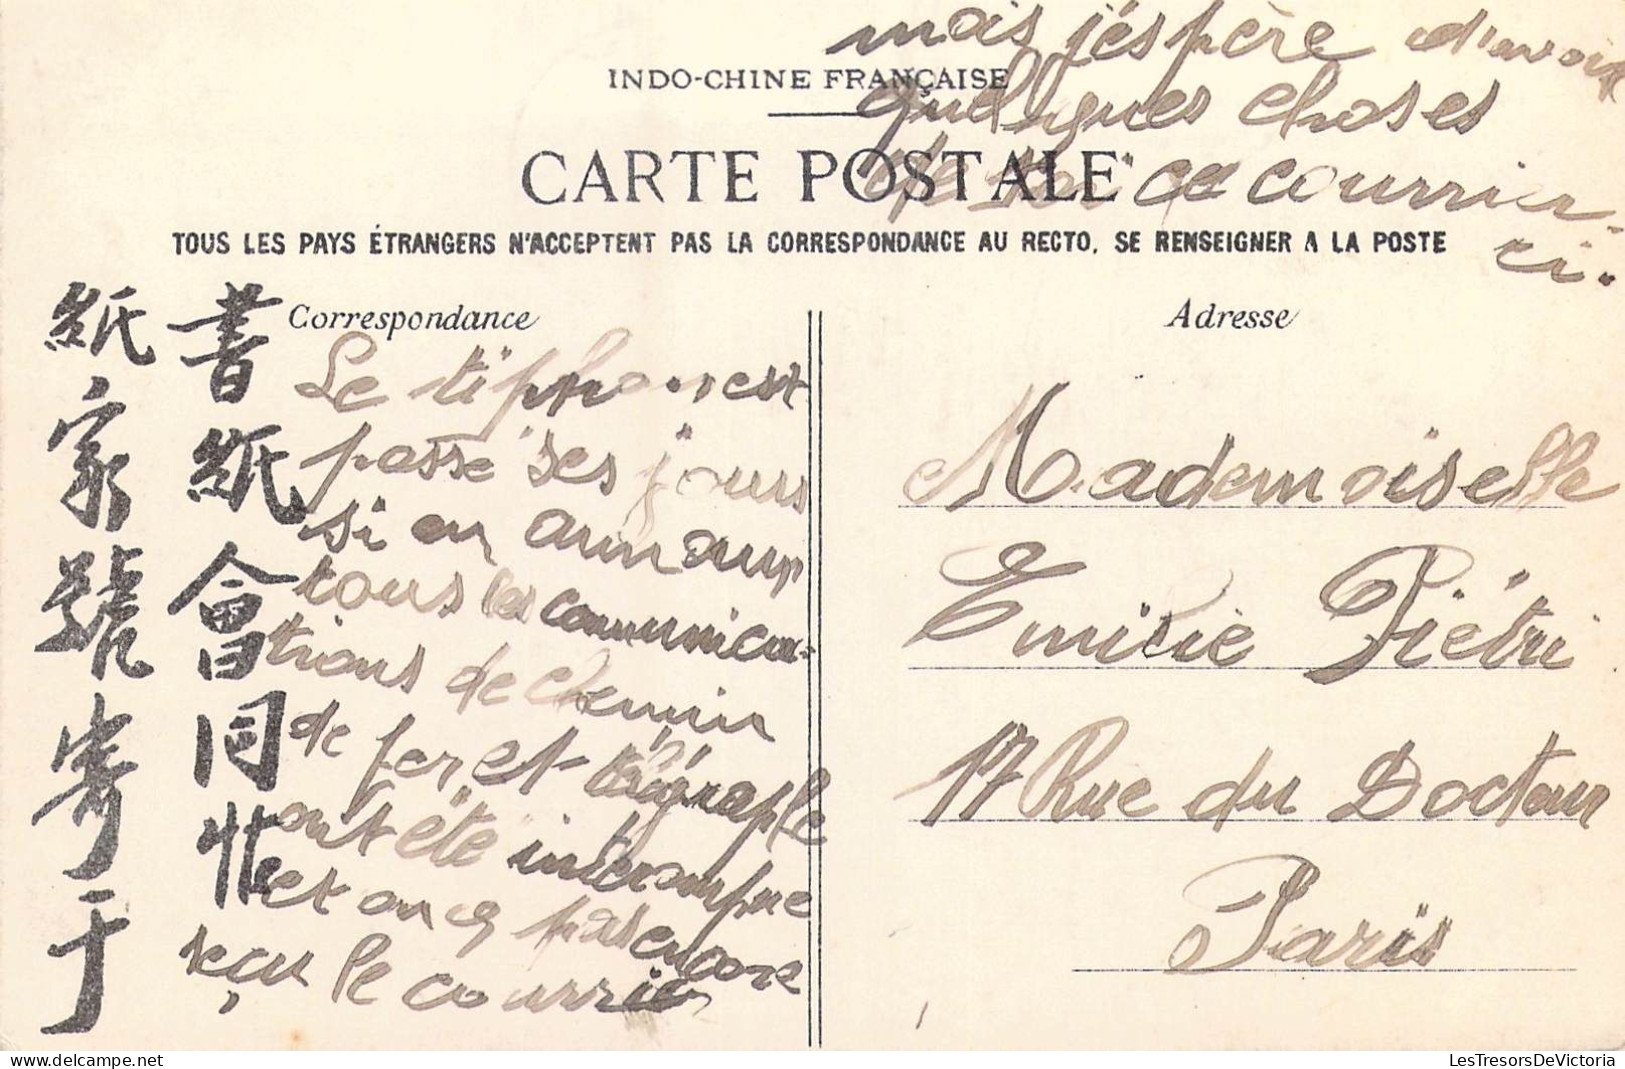 mais j'éspère d'avoir
INDO-CHINE FRANÇAISE
quelques choses
CARTE POSTALE
de ce courrier
ci.
TOUS LES PAYS ÉTRANGERS N'ACCEPTENT PAS LA CORRESPONDANCE AU RECTO, SE RENSEIGNER A LA POSTE
Correspondance
Le tiphon est
passé ses jours
si en annam
tous les communica-
tions de chemin
de fer et télégraphe
ont été interompue
et on a pas encore
reçu le courrier
書紙會同
紙家號寄于
Adresse
Mademoiselle
Emilie Piétri
17 Rue du Docteur
Paris
LesTresorsDeVictoria